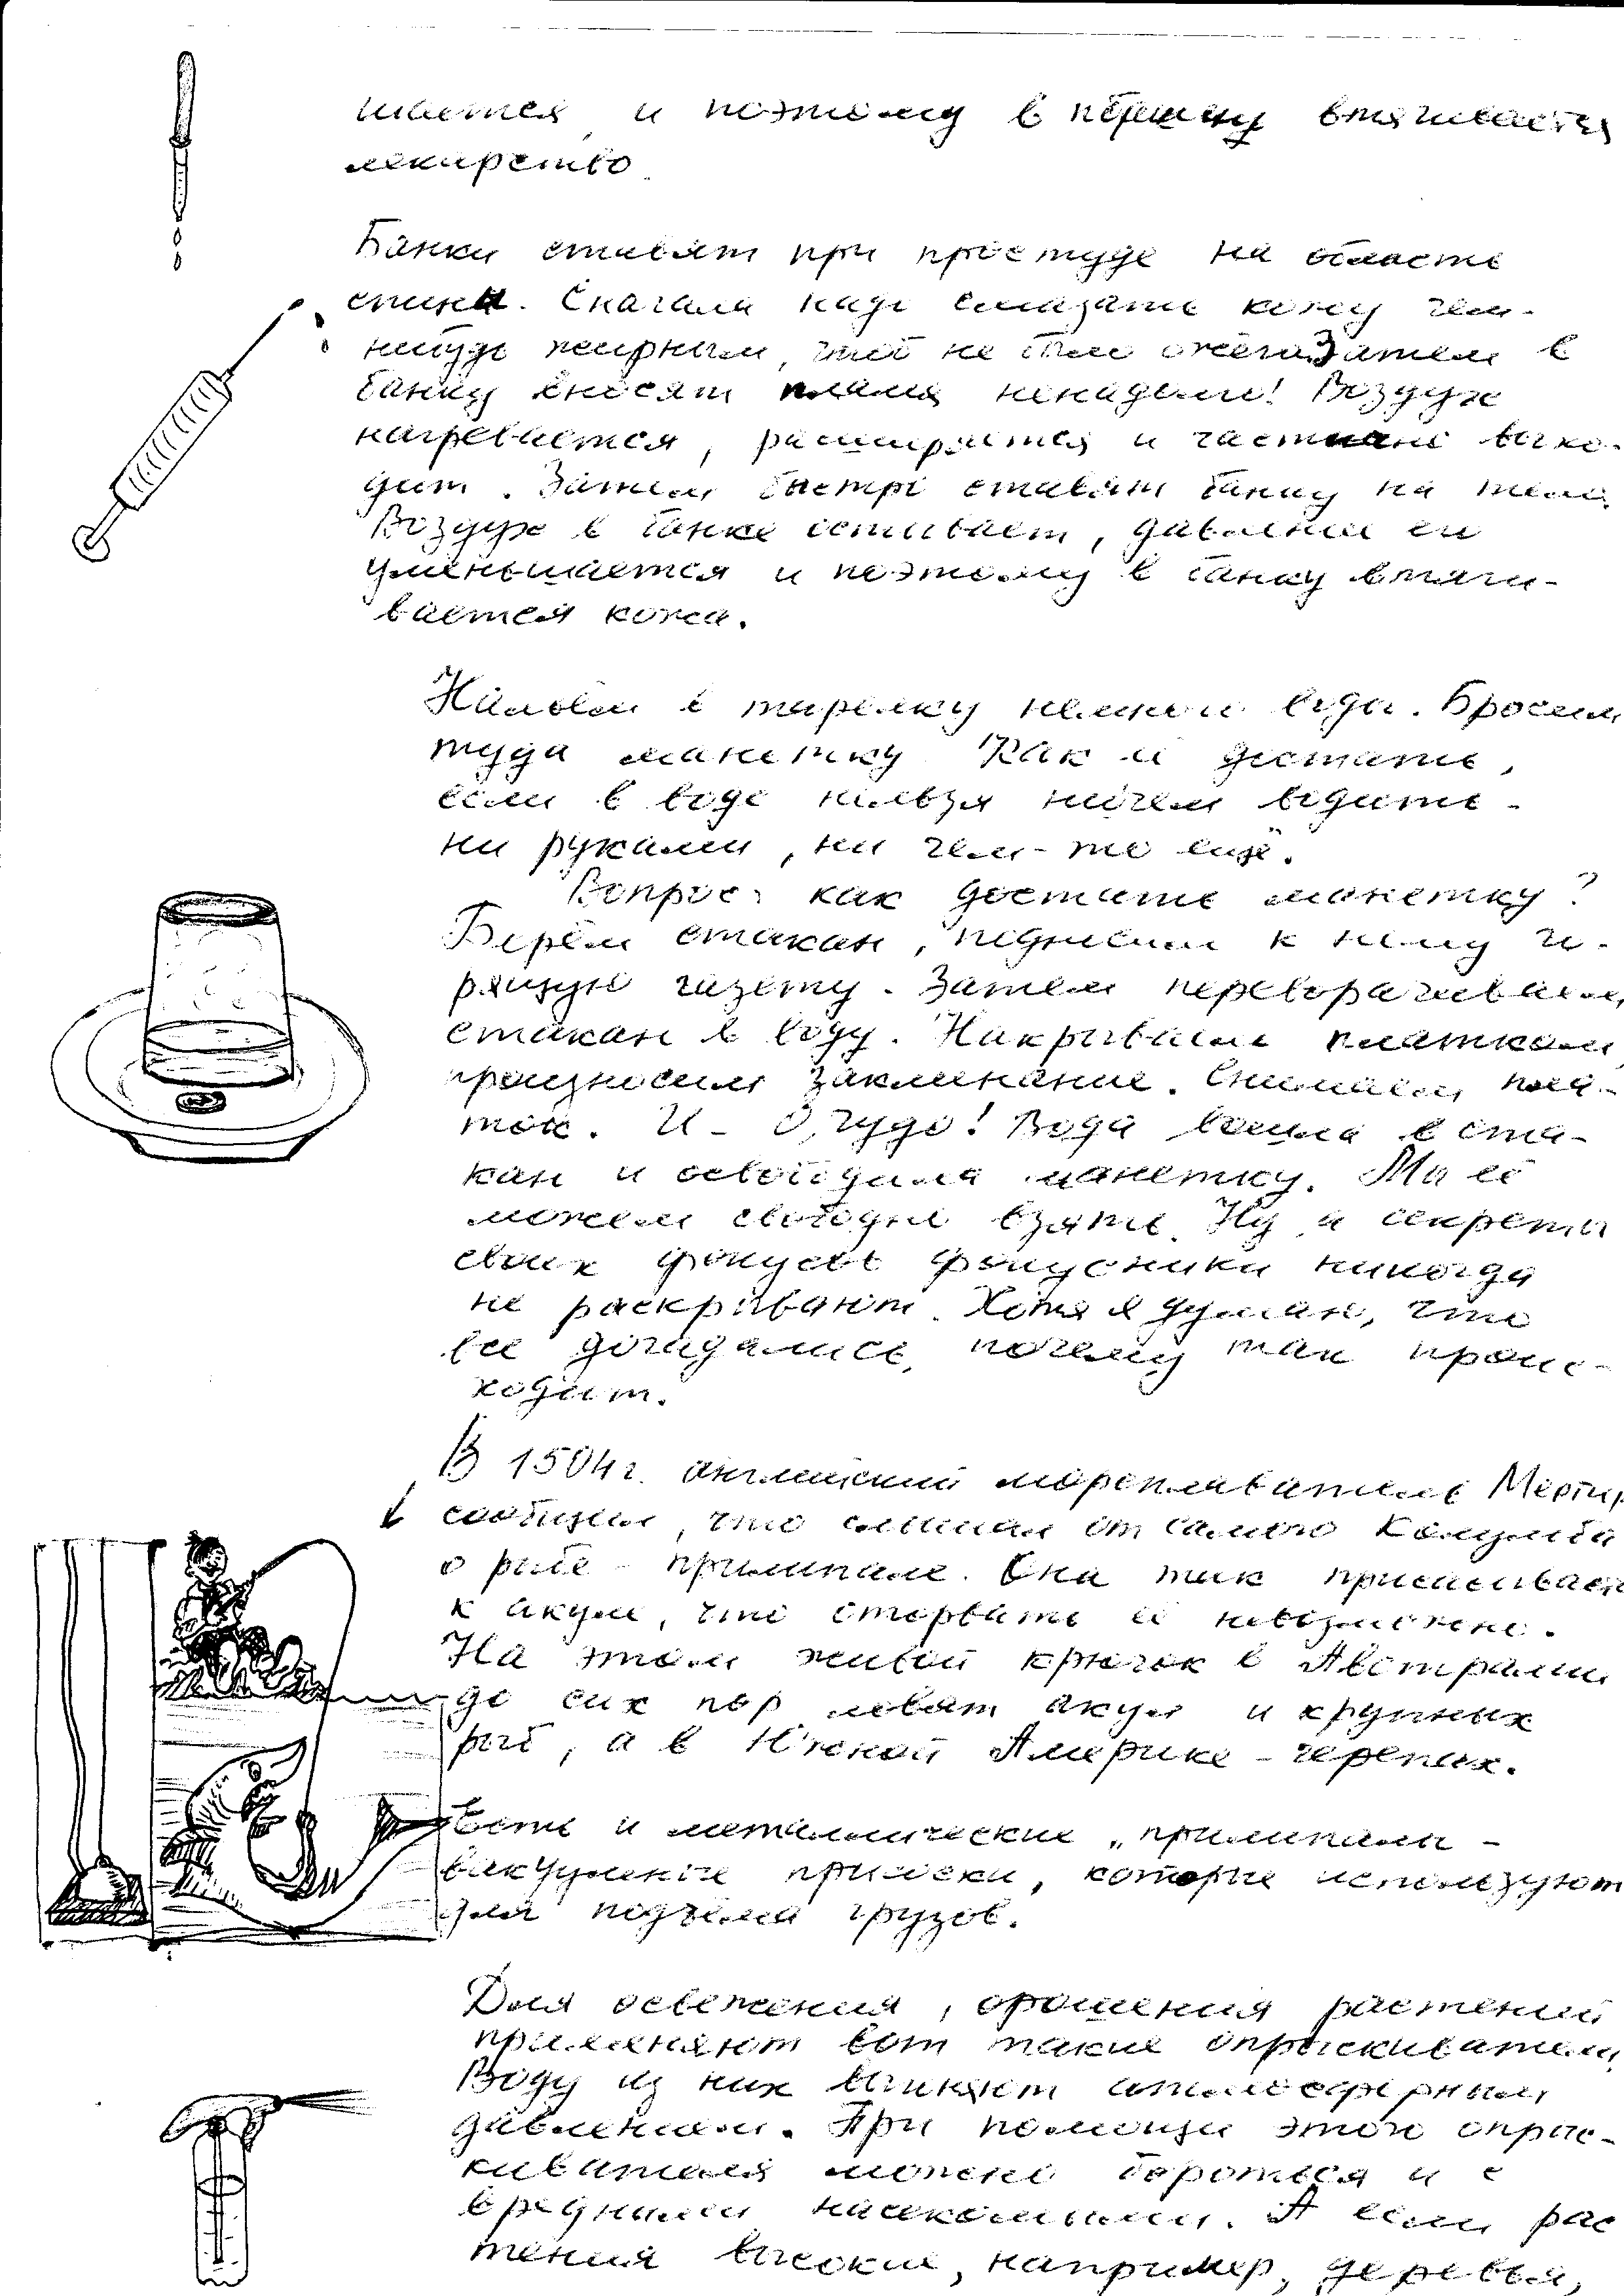 шается, и поэтому в пёрышку втягивается
лекарство.
Банки ставят при простуде на область
спины. Сначала надо смазать кожу чем-
нибудь жирным, чтоб не было ожёга. Затем в
банку вносят пламя ненадолго! Воздух
нагревается, расширяется и частично выхо-
дит. Затем быстро ставят банку на тело.
Воздух в банке остывает, давление его
уменьшается и поэтому в банку втяги-
вается кожа.
Нальём в тарелку немного воды. Бросим
туда монетку. Как её достать,
если в воде нельзя ничем водить -
ни руками, ни чем-то ещё.
Вопрос: как достать монетку?
Берём стакан, подносим к нему го-
рящую газету. Затем переворачиваем
стакан в воду. Накрываем платком,
произносим заклинание. Снимаем пла-
ток. И - О, чудо! Вода вошла в ста-
кан и освободила монетку. Мы её
можем свободно взять. Ну а секреты
своих фокусов фокусники никогда
не раскрывают. Хотя я думаю, что
все догадались, почему так проис-
ходит.
В 1504 г. английский мореплаватель
сообщил, что слышал от самого Колумба
о рыбе - прилипале. Она так присасывается
к акуле, что оторвать её невозможно.
На этом живой крючок в Австралии
до сих пор ловят акул и крупных
рыб, а в Южной Америке - черепах.
Есть и металлические „прилипалы -
вакуумные присоски, которые используют
для подъёма грузов.
Для освежения, орошения растений
применяют вот такие опрыскиватели,
Воду из них выжимает атмосферным
давлением. При помощи этого опрыс-
кивателя можно бороться и с
вредными насекомыми. А если рас
тения высокие, например, деревья,